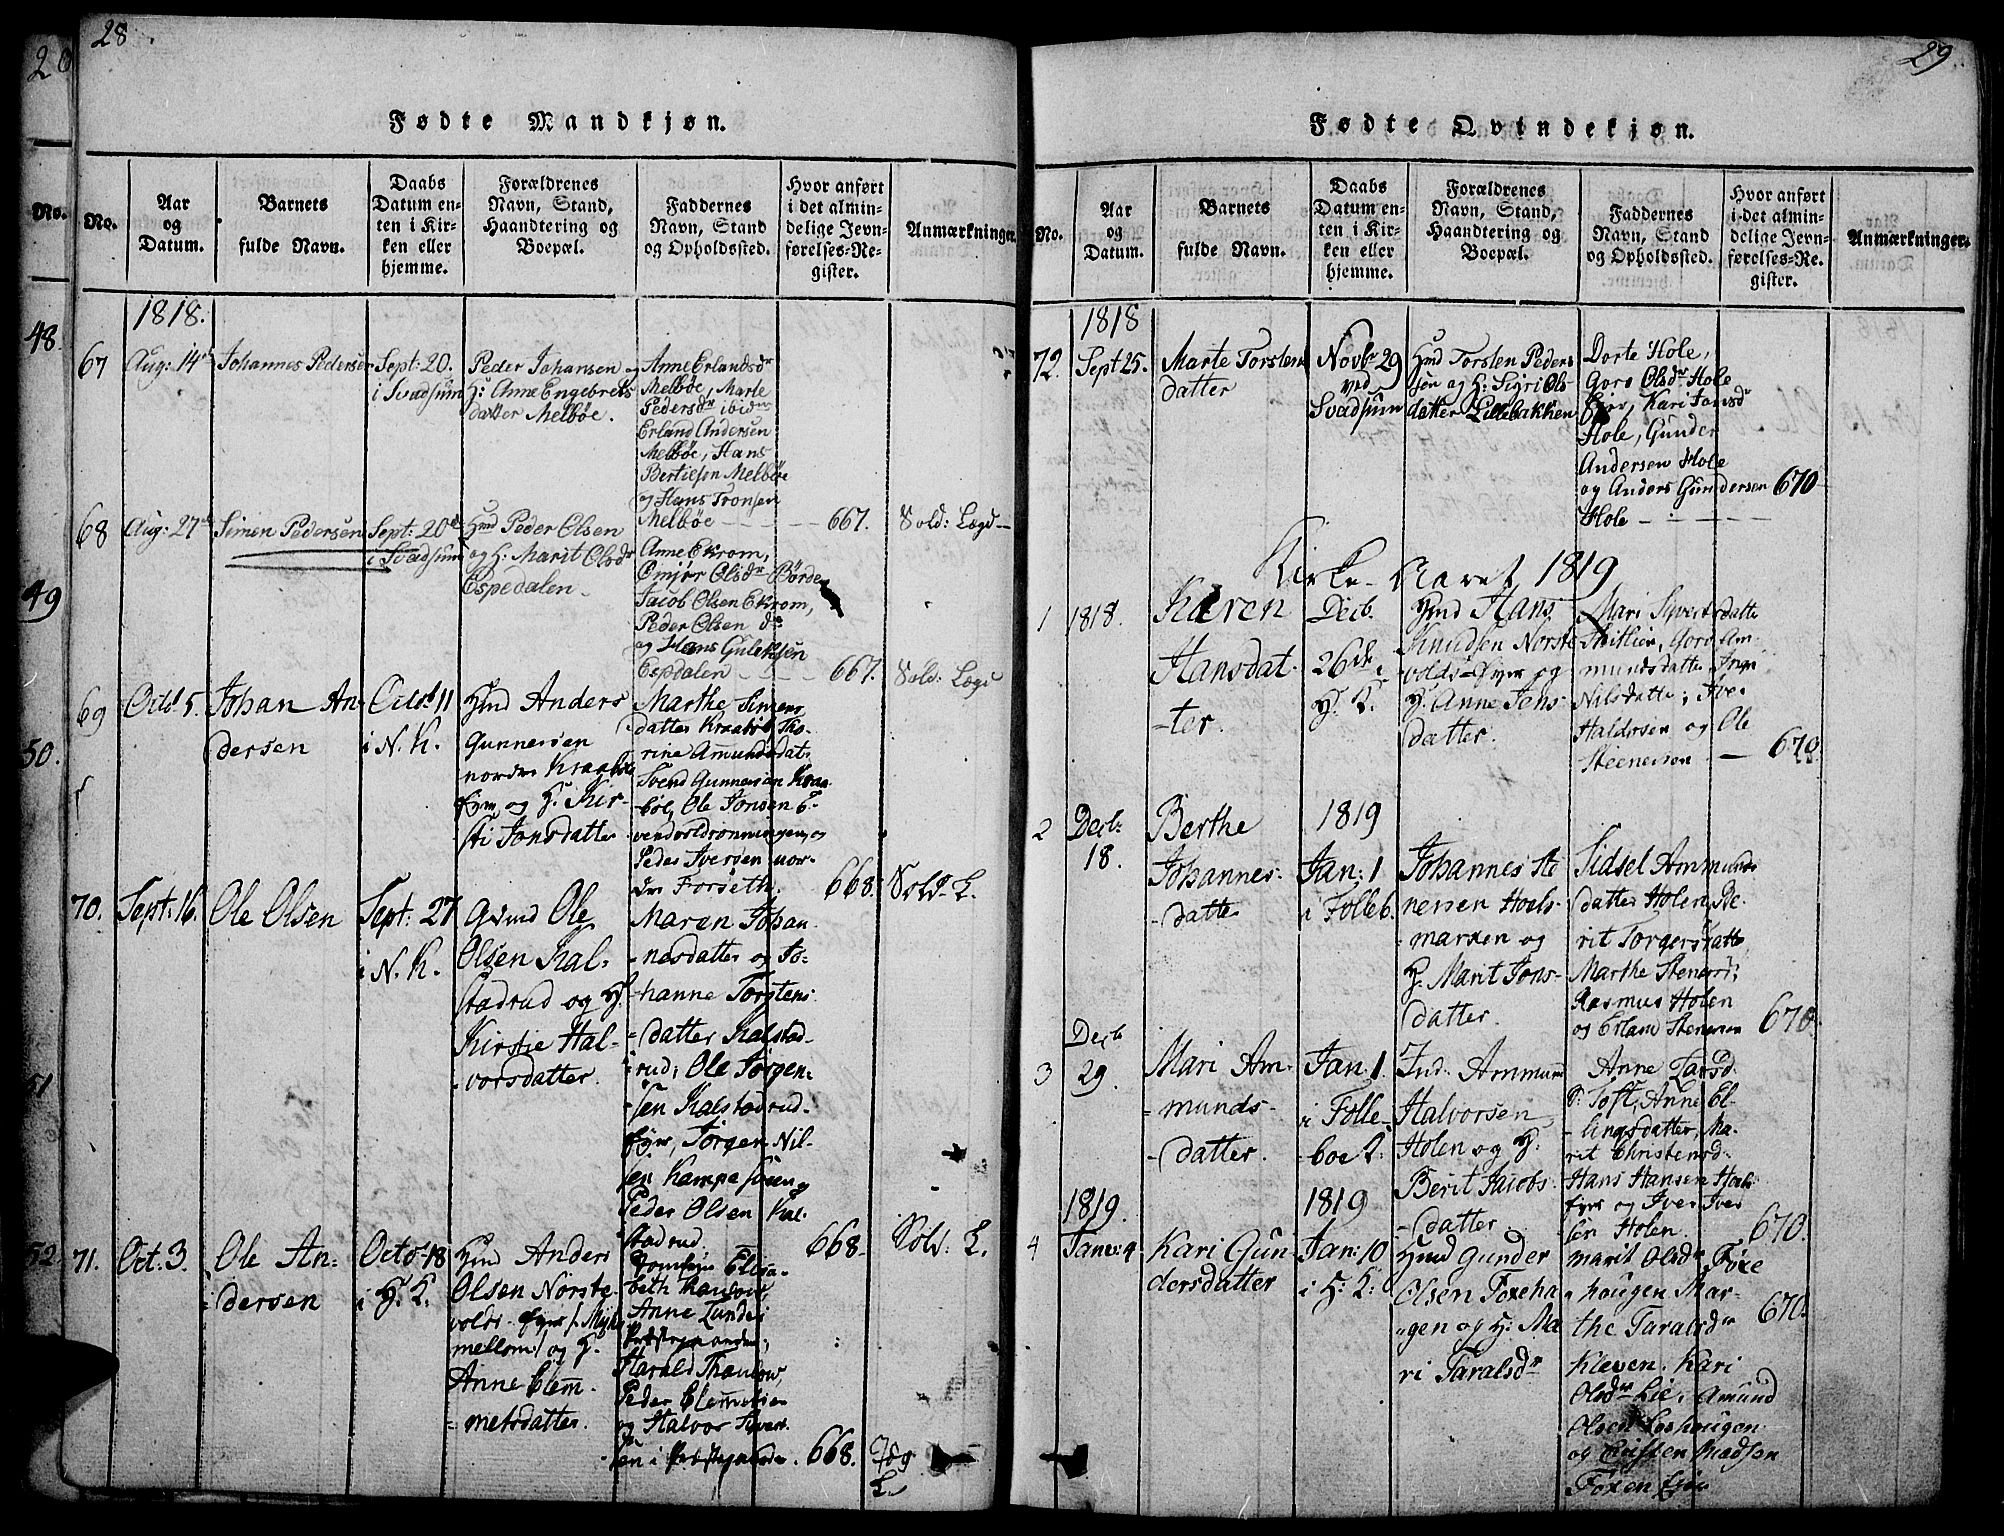 28
Fødte Mandkjøn.
No.
Aar og Datum.
Barnets fulde Navn.
Daabs Datum enten i Kirken eller hjemme.
Forældrenes Navn, Stand, Haandtering og Boepæl.
Faddernes Navn, Stand og Opholdssted.
Hvor anført i det almindelige Jevnførelses-Register.
Anmærkninger.
1818.
67
Aug: 14de
Johannes Pedersen
Sept: 20.
i Svadsum
Peder Johansen og
H: Anne Engebrets
datter Melbøe.
Anne Erlandsdr
Melbøe, Marte
Pedersdr ibidm
Erland Andersen
Melbøe, Hans
Bertelsen Melbøe
og Hans Tronsen
Melbøe - - - - 667.
Sold: Lægd
68
Aug: 27de
Simen Pedersen
Sept: 20de
i Svadsum
Hmd Peder Olsen
og H: Marit Olsdr
Espedalen
Anne Ekrom,
Olsdr Børde
Jacob Olsen Ekrom,
Peder Olsen do
og Hans Guleksen
Espdalen - - - 667.
Sold: Lægd
69
Octb. 5.
Johan An
dersen
Octob 11
i N. K.
Hmd Anders
Gunnersen
nordre Kraabøl
eyer og H. Kir-
sti Jonsdatter
Marthe Simens
datter Kraabøl Tho-
rine Amundsdat-
Svend Gunnersen Kraa
bøl, Ole Jonsen
Peder Iversen nor-
dre Forseth.
668.
Sold. L.
70.
Sept: 16.
Ole Olsen
Sept: 27
i N. K.
Gsmd Ole
Olsen Kal-
stadrud og H.
Kirstie Hal-
vorsdatter.
Maren Johan
nesdatter og Jo-
hanne Torstens
datter Kalstad-
rud, Ole Jørgen-
sen Kalstadrud-
eyer, Jørgen Nil-
sen Kampesveen
Peder Olsen Kal-
stadrud.
668.
Sold. L.
71.
Oct: 3.
Ole An-
dersen
Octob 18
i H. K.
Hmd Anders
Olsen Nørste
volds-eyer
mellom) og H.
Anne Clem-
metsdatter.
Jomfrue Elisa-
beth Thaulow,
Anne Lunde
Præstegaarden,
Harald Thaulow,
Peder Clemmetsen
og Halvor Syvert
sen i Præstegaarden. 668.
29.
Fødte Qvindekjøn.
No.
Aar og Datum.
Barnets fulde Navn.
Daabs Datum enten i Kirken eller hjemme.
Forældrenes Navn, Stand, Haandtering og Boepæl.
Faddernes Navn, Stand og Opholdssted.
Hvor anført i det almindelige Jevnførelses-Register.
Anmærkninger.
1818
72.
Sept 25.
Marte Torstens
datter
Novbr 29
ved
Svadsum
Hmd Torsten Peder
sen og H: Sigri Ols
datter Lillebakken
Dorte Hole,
Goro Olsdr Hole
Eier, Kari Jonsdr
Hole, Gunder
Andersen Hole
og Anders Gundersen 670
Hole - - - -
Kirke-Aaret 1819
1
1818.
Karen
Hansdat-
ter.
Decb.
26de i
H. K.
Hmd Hans
Knudsen Nørste
volds-eyer og
H. Anne Jens-
datter.
Mari Syvertsdatte
Goro Am-
mundsdatte Inge
Nilsdatte; Iver
Haldorsen og Ole
Steenersen - 670.
2
Decb:
18.
Berthe
Johannes-
datte
1819
Jan: 1
i Folleb.
Johannes Ste
nersen Hoels-
marken og
H. Marit Jons-
datter.
Sidsel Ammunds
datter Holen, Be-
rit Torgersdatte
Marthe Stenersd;
Rasmus Holen
og Erland Stenersen 670.
3
Decb
29.
Mari Am-
munds-
datter.
Jan: 1.
i Folle-
boe K.
Ind. Ammund
Halvorsen
Holen og H.
Berit Jacobs-
datter.
Anne Larsd
Toft, Anne El-
lingsdatter, Ma-
rit Christensd.
Hans Hansen Hoels-
eyer og Iver Iver
sen Holen. 670.
1819.
4
Janu: 4
Kari Gun
dersdatter
1819
Jan: 10
i H: K:
Hmd Gunder
Olsen Foxeha
gen og H. Ma
ri Taralsdr
Marit Olsdr Foxe
haugen Mar-
the Taralsdr 670.
Kleven. Kari
Olsdr Lie, Amund
Olsen Loshaugen
og Christen Madsen
Foxen Eier
20
No.
48.
49
50.
51
52